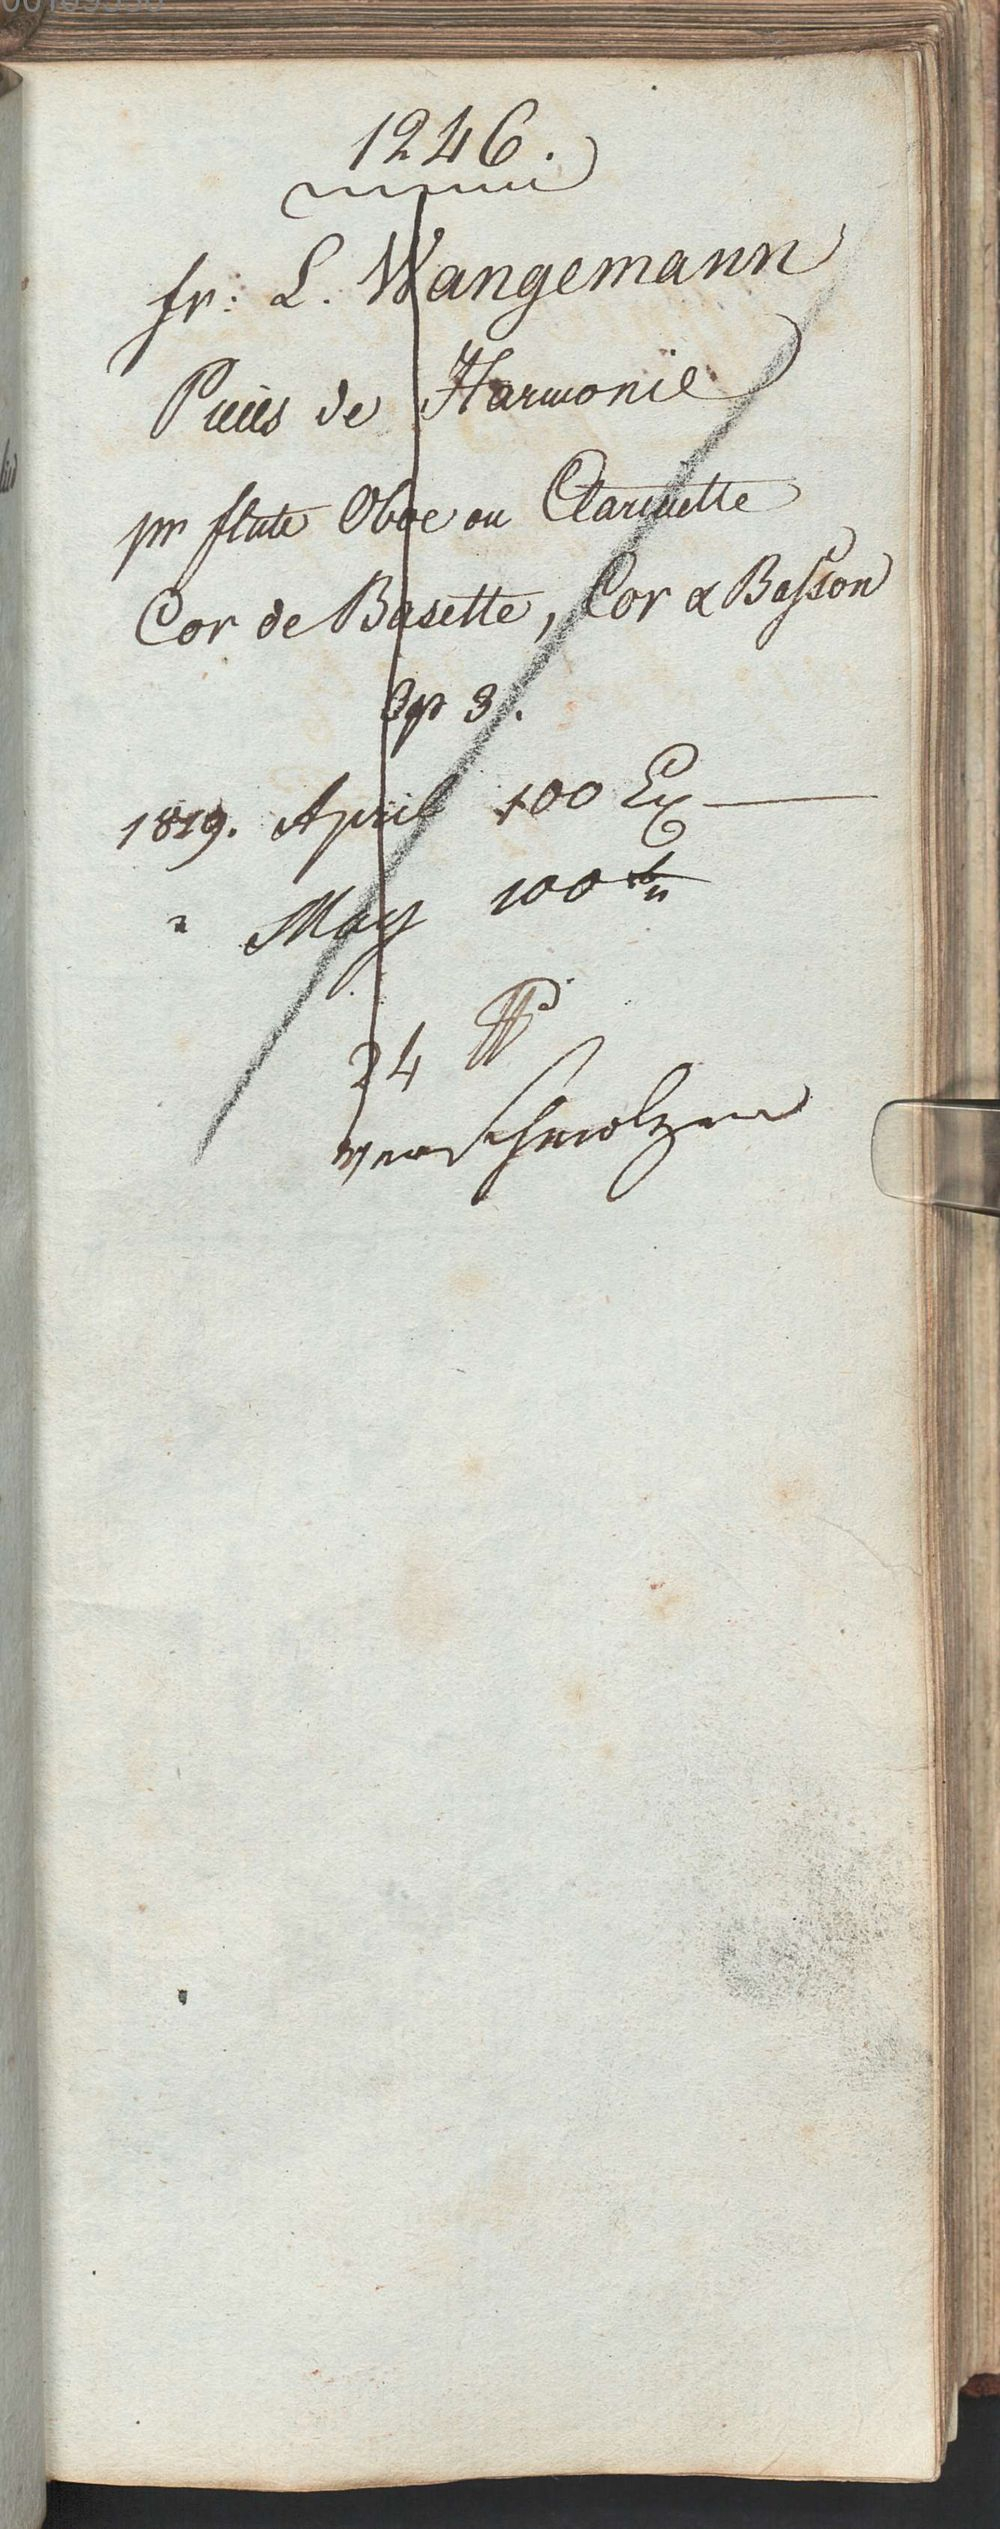 00109530
1246.
fr: L. Wangemann
Pieces de Harmonie
pr flute Oboe ou Clarinette
Cor de Basette, Cor & Baſson
Op 3.
1819. April 100 Ex
" May 100 "
24
verschmolzen